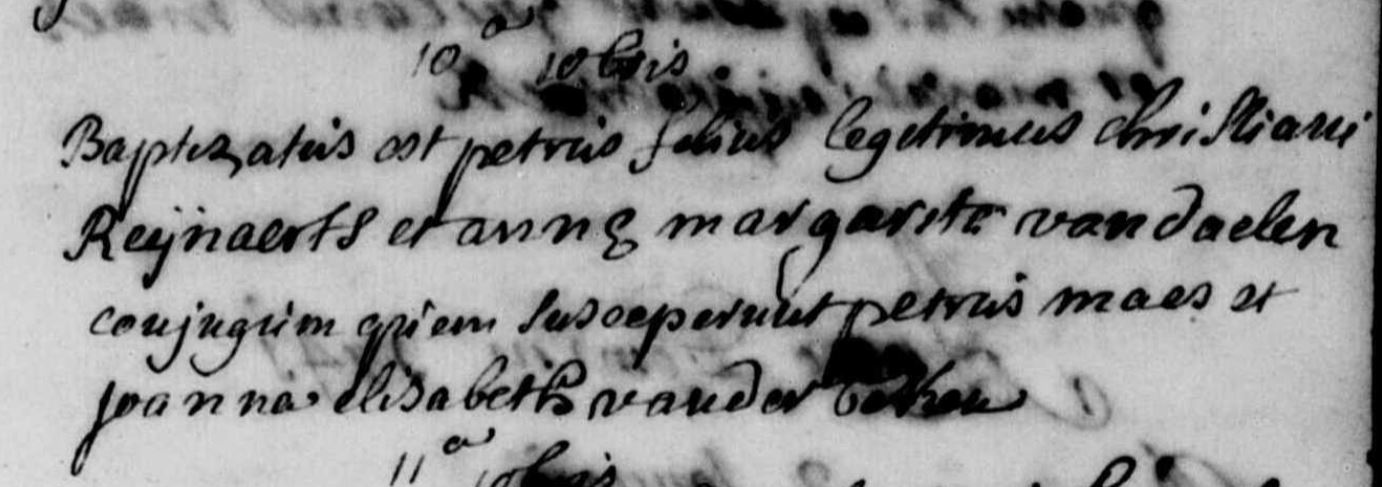 10a 10bris
Baptizatus est petrus filius legitimus christiani
Reijnaerts et annę margaritę van daelen
conjugum quem susceperunt petrus maes et
joanna elisabeth vander
11a 10bris